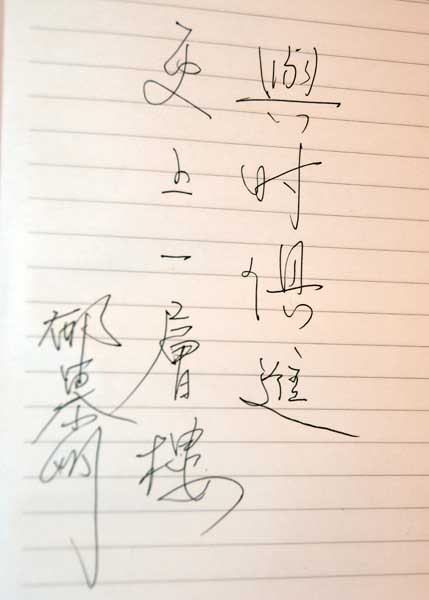 與时俱進
更上一層樓